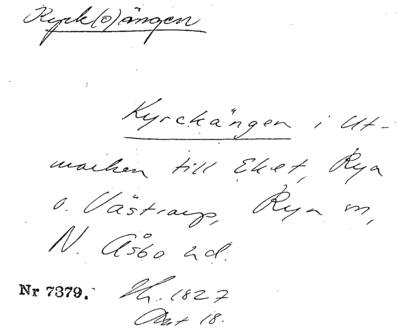 Kyrk(o)ängen
Kyrckängen i Ut-
marken till Eket, Rya
o. Västraup, Rya sn,
N. Åsbo hd.
Nr 7379. Lh. 1827
Akt 18.